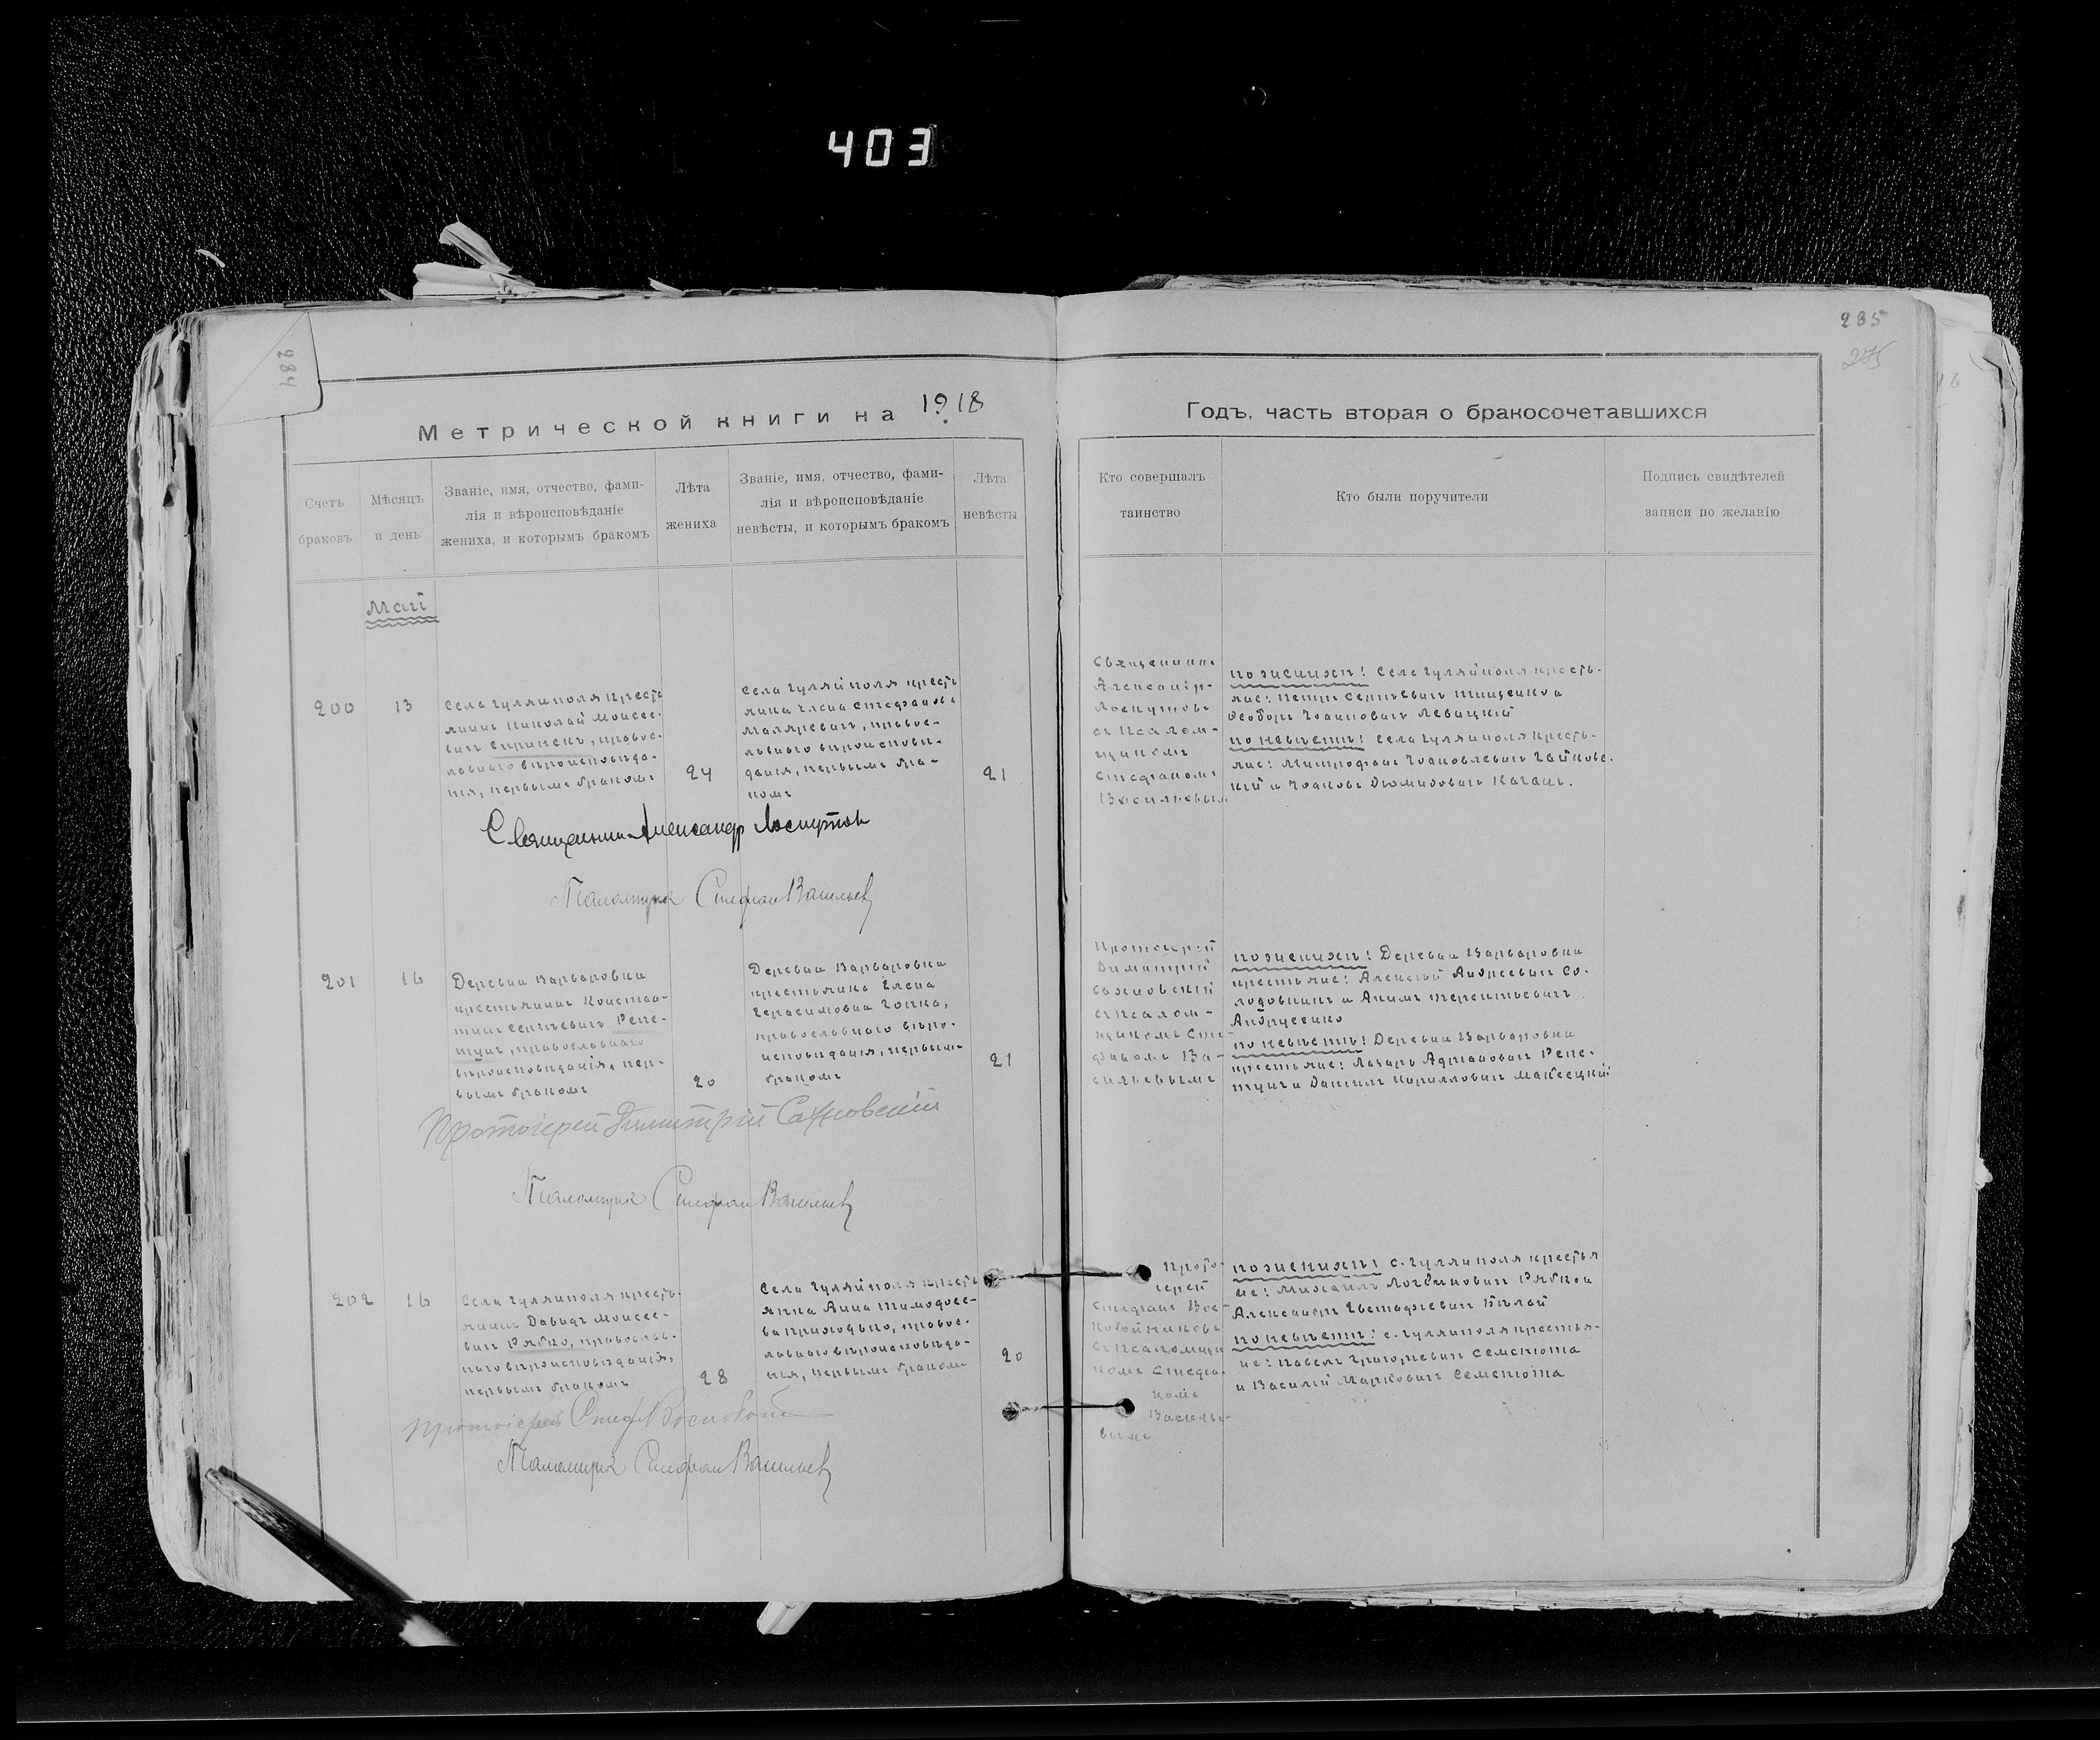 403
284
285
275
Метрической книги на 1918
Годъ, часть вторая о бракосочетавшихся
Счетъ
браковъ
Мѣсяцъ
и день
Званіе, имя, отчество, фами-
лія и вѣроисповѣданіе
жениха, и которымъ бракомъ
Лѣта
жениха
Званіе, имя, отчество, фами-
лія и вѣроисповѣданіе
невѣсты, и которымъ бракомъ
Лѣта
невѣсты
Кто совершалъ
таинство
Кто были поручители
Подпись свидѣтелей
записи по желанію
Май
200
13
Села Гуляйполя кресть
янинъ Николай Моисее-
вичъ, правос-
лавнаго вѣроисповѣда-
нія, первымъ бракомъ
24
Села Гуляйполя кресть
янка Елена Стефанова
Маляревичъ, правос-
лавнаго вѣроисповѣ-
данія, первымъ бра-
комъ
21
Священникъ
Александръ
Лоскутовъ
съ псалом-
щикомъ
Стефаномъ
Васильевым
по женихѣ: Села Гуляйполя кресть-
яне: Петръ Сергѣевичъ Тищенко и
Ѳеодоръ Іоанновичъ Левицкій
по невѣстѣ: Села Гуляйполя кресть-
яне: Митрофанъ Іоаковлевичъ Гайковс-
кій и Іоаковъ Діомидовичъ Качанъ.
Священникъ Александр Лоскутов
Псаломщикъ Стефан Васильев
201
16
Деревни Варваровки
крестьянинъ Констан-
тинъ Сергѣевичъ Репе-
тунъ, православнаго
вѣроисповѣданія, пер-
вымъ бракомъ
20
Деревни Варваровки
крестьянка Елена
Герасимовна Гопка,
православнаго вѣро-
исповѣданія, первымъ
бракомъ
21
Протоіерей
Димитрій
Сахновскій
съ псалом-
щикомъ Сте-
фаномъ Ва-
сильевымъ
по женихѣ: Деревни Варваровки
крестьяне: Алексѣй Андреевичъ Со-
лодовникъ и Акимъ Терентьевичъ
Андрусенко
по невѣстѣ: Деревни Варваровки
крестьяне: Лазарь Адріановичъ Репе-
тунъ и Даніилъ Кирилловичъ Макеецкій
Протоіерей Димитрій Сахновскій
Псаломщикъ Стефан Васильев
202
16
Села Гуляйполя кресть-
янинъ Давидъ Моисее-
вичъ Рябко, православ-
наго вѣроисповѣданія,
первымъ бракомъ
28
Села Гуляйполя кресть
янка Анна Тимофее-
ва Приходько, правос-
лавнаго вѣроисповѣда-
нія, первымъ бракомъ
20
Прото-
іерей
Стефанъ Вос-
съ псаломщи
комъ Стефа-
номъ
Василье-
вымъ
по женихѣ: с. Гуляйполя крестья
не: Михаилъ Логвиновичъ Рябко и
Александръ Евстафіевичъ Бѣлай
по невѣстѣ: с. Гуляйполя крестья-
не: Павелъ Григорьевичъ Семенюта
и Василій Марковичъ Семенюта
Протоіерей Стеф.
Псаломщикъ Стефан Васильев